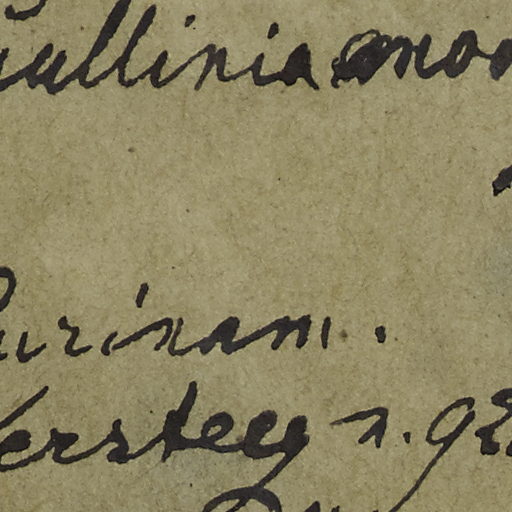 ullinia
urinam.
Versteeg n. 92